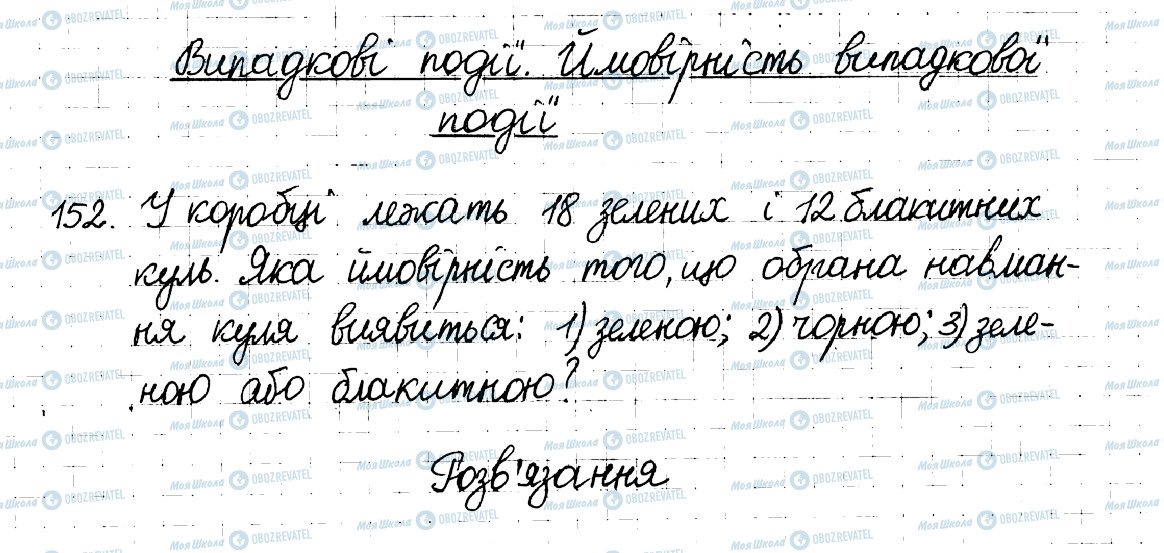 Випадкові події. Ймовірність випадкової
події
152. У коробці лежать 18 зелених і 12 блакитних
куль. Яка ймовірність того, що обрана навман-
ня куля виявиться: 1) зеленою; 2) чорною; 3) зеле-
ною або блакитною?
Розв'язання